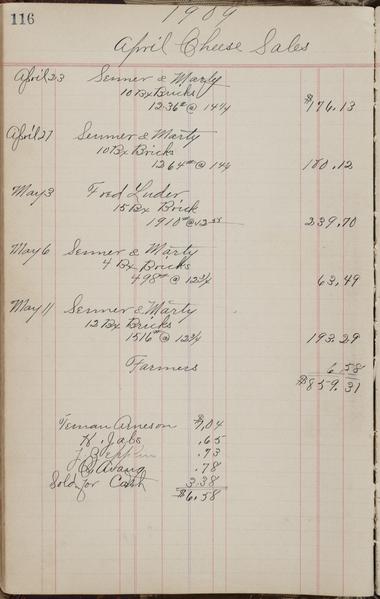 116
1909
April Cheese Sales
April 23 Senner & Marty
10 Bx Bricks
1236# @ 14 1/4 $176.13
April 27 Senner & Marty
10 Bx Bricks
1264# @ 14 1/4 180.12
May 3 Fred Luder
15 Bx Brick
1910# @ 12 55 239.70
May 6 Senner & Marty
4 Bx Bricks
498# @ 12 3/4 63.49
May 11 Senner & Marty
12 Bx Bricks
1516# @ 12 3/4 193.29
Farmers 6.58
$859.31
Arneson $1.04
K. Jabs .65
.73
.78
Sold for Cash 3.38
$6.58